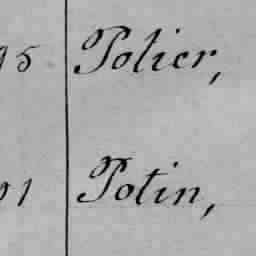 95 Polier,
91 Potin,